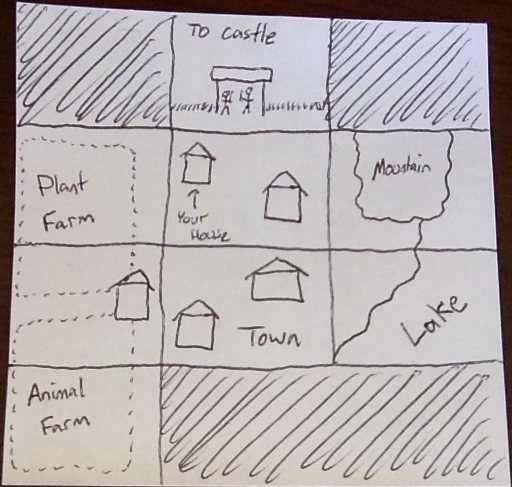 To castle
Plant
Farm
↑
Your
House
Mountain
Town
Lake
Animal
Farm